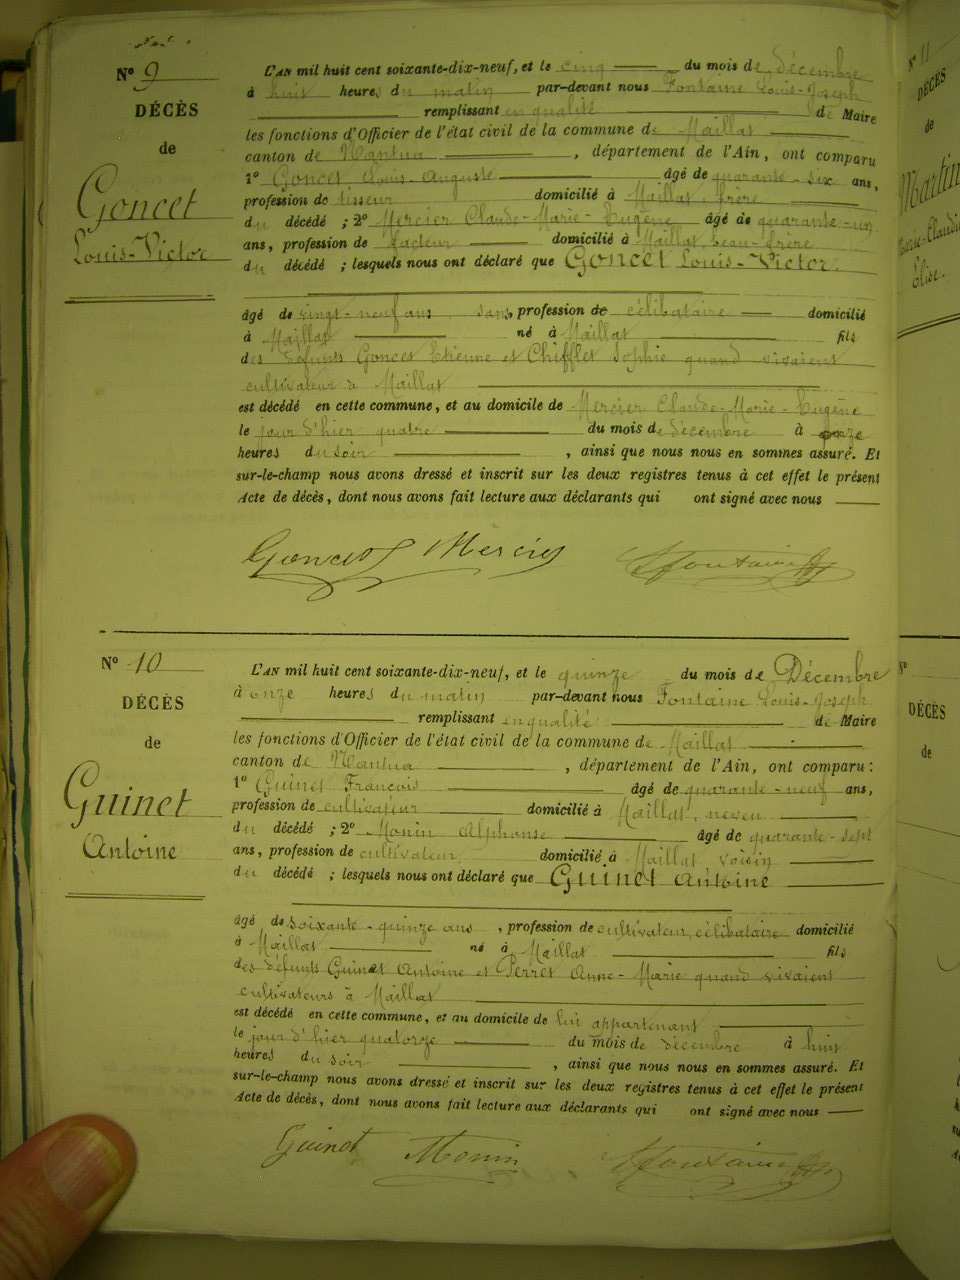 Nº 9
DÉCÈS
de
Goncet
Louis-Victor
L'AN mil huit cent soixante-dix-neuf, et le cinq du mois de Décembre
à huit heures du matin par-devant nous Fontaine Louis-Joseph
remplissant en qualité de Maire
les fonctions d'Officier de l'état civil de la commune de Maillat
canton de Nantua, département de l'Ain, ont comparu
1º Goncet Louis Auguste âgé de quarante-six ans,
profession de tisseur domicilié à Maillat, frère
du décédé ; 2º Mercier Claude-Marie-Eugène âgé de quarante-un
ans, profession de facteur domicilié à Maillat beau-frère
du décédé ; lesquels nous ont déclaré que Goncet Louis-Victor.
âgé de vingt-neuf ans, sans profession de célibataire domicilié
à Maillat né à Maillat fils
des défunts Goncet Etienne et Chifflet Sophie quand vivaient
cultivateur à Maillat
est décédé en cette commune, et au domicile de Mercier Claude-Marie-Eugène
le jour d'hier quatre du mois de décembre à onze
heures du soir, ainsi que nous nous en sommes assuré. Et
sur-le-champ nous avons dressé et inscrit sur les deux registres tenus à cet effet le présent
Acte de décès, dont nous avons fait lecture aux déclarants qui ont signé avec nous
Goncet Mercier Fontaine
Nº 10
DÉCÈS
de
Guinet
Antoine
L'AN mil huit cent soixante-dix-neuf, et le quinze du mois de Décembre
à onze heures du matin par-devant nous Fontaine Louis-Joseph
remplissant en qualité de Maire
les fonctions d'Officier de l'état civil de la commune de Maillat
canton de Nantua, département de l'Ain, ont comparu :
1º Guinet François âgé de quarante-neuf ans,
profession de cultivateur domicilié à Maillat, neveu
du décédé ; 2º Monin Alphonse âgé de quarante-sept
ans, profession de cultivateur, domicilié à Maillat voisin
du décédé ; lesquels nous ont déclaré que Guinet Antoine
âgé de soixante-quinze ans, profession de cultivateur, célibataire domicilié
à Maillat né à Maillat fils
des défunts Guinet Antoine et Perret Anne-Marie quand vivaient
cultivateurs à Maillat
est décédé en cette commune, et au domicile de lui appartenant
le jour d'hier quatorze du mois de décembre à huit
heures du soir, ainsi que nous nous en sommes assuré. Et
sur-le-champ nous avons dressé et inscrit sur les deux registres tenus à cet effet le présent
Acte de décès, dont nous avons fait lecture aux déclarants qui ont signé avec nous
Guinet Monin Fontaine
Nº 11
DÉCÈS
de
Martin
Marie-Claudine
Elise.
Nº
DÉCÈS
de